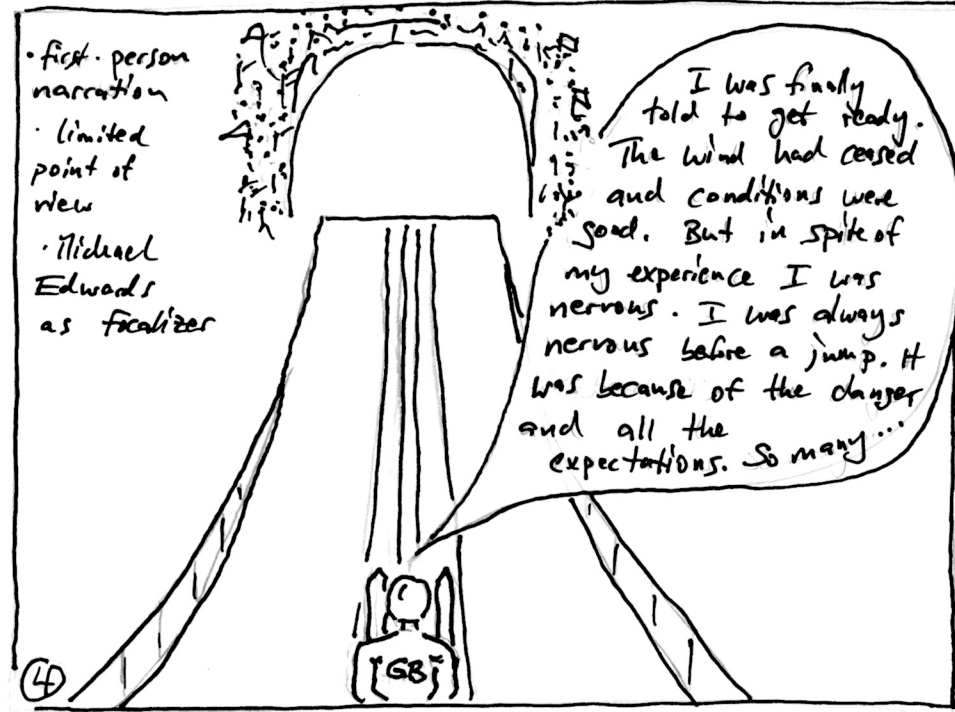 · first-person
narration
· limited
point of
view
· Michael
Edwards
as focalizer
I was finally
told to get ready.
The wind had ceased
and conditions were
good. But in spite of
my experience I was
nervous. I was always
nervous before a jump. It
was because of the danger
and all the
expectations. So many...
GB
4